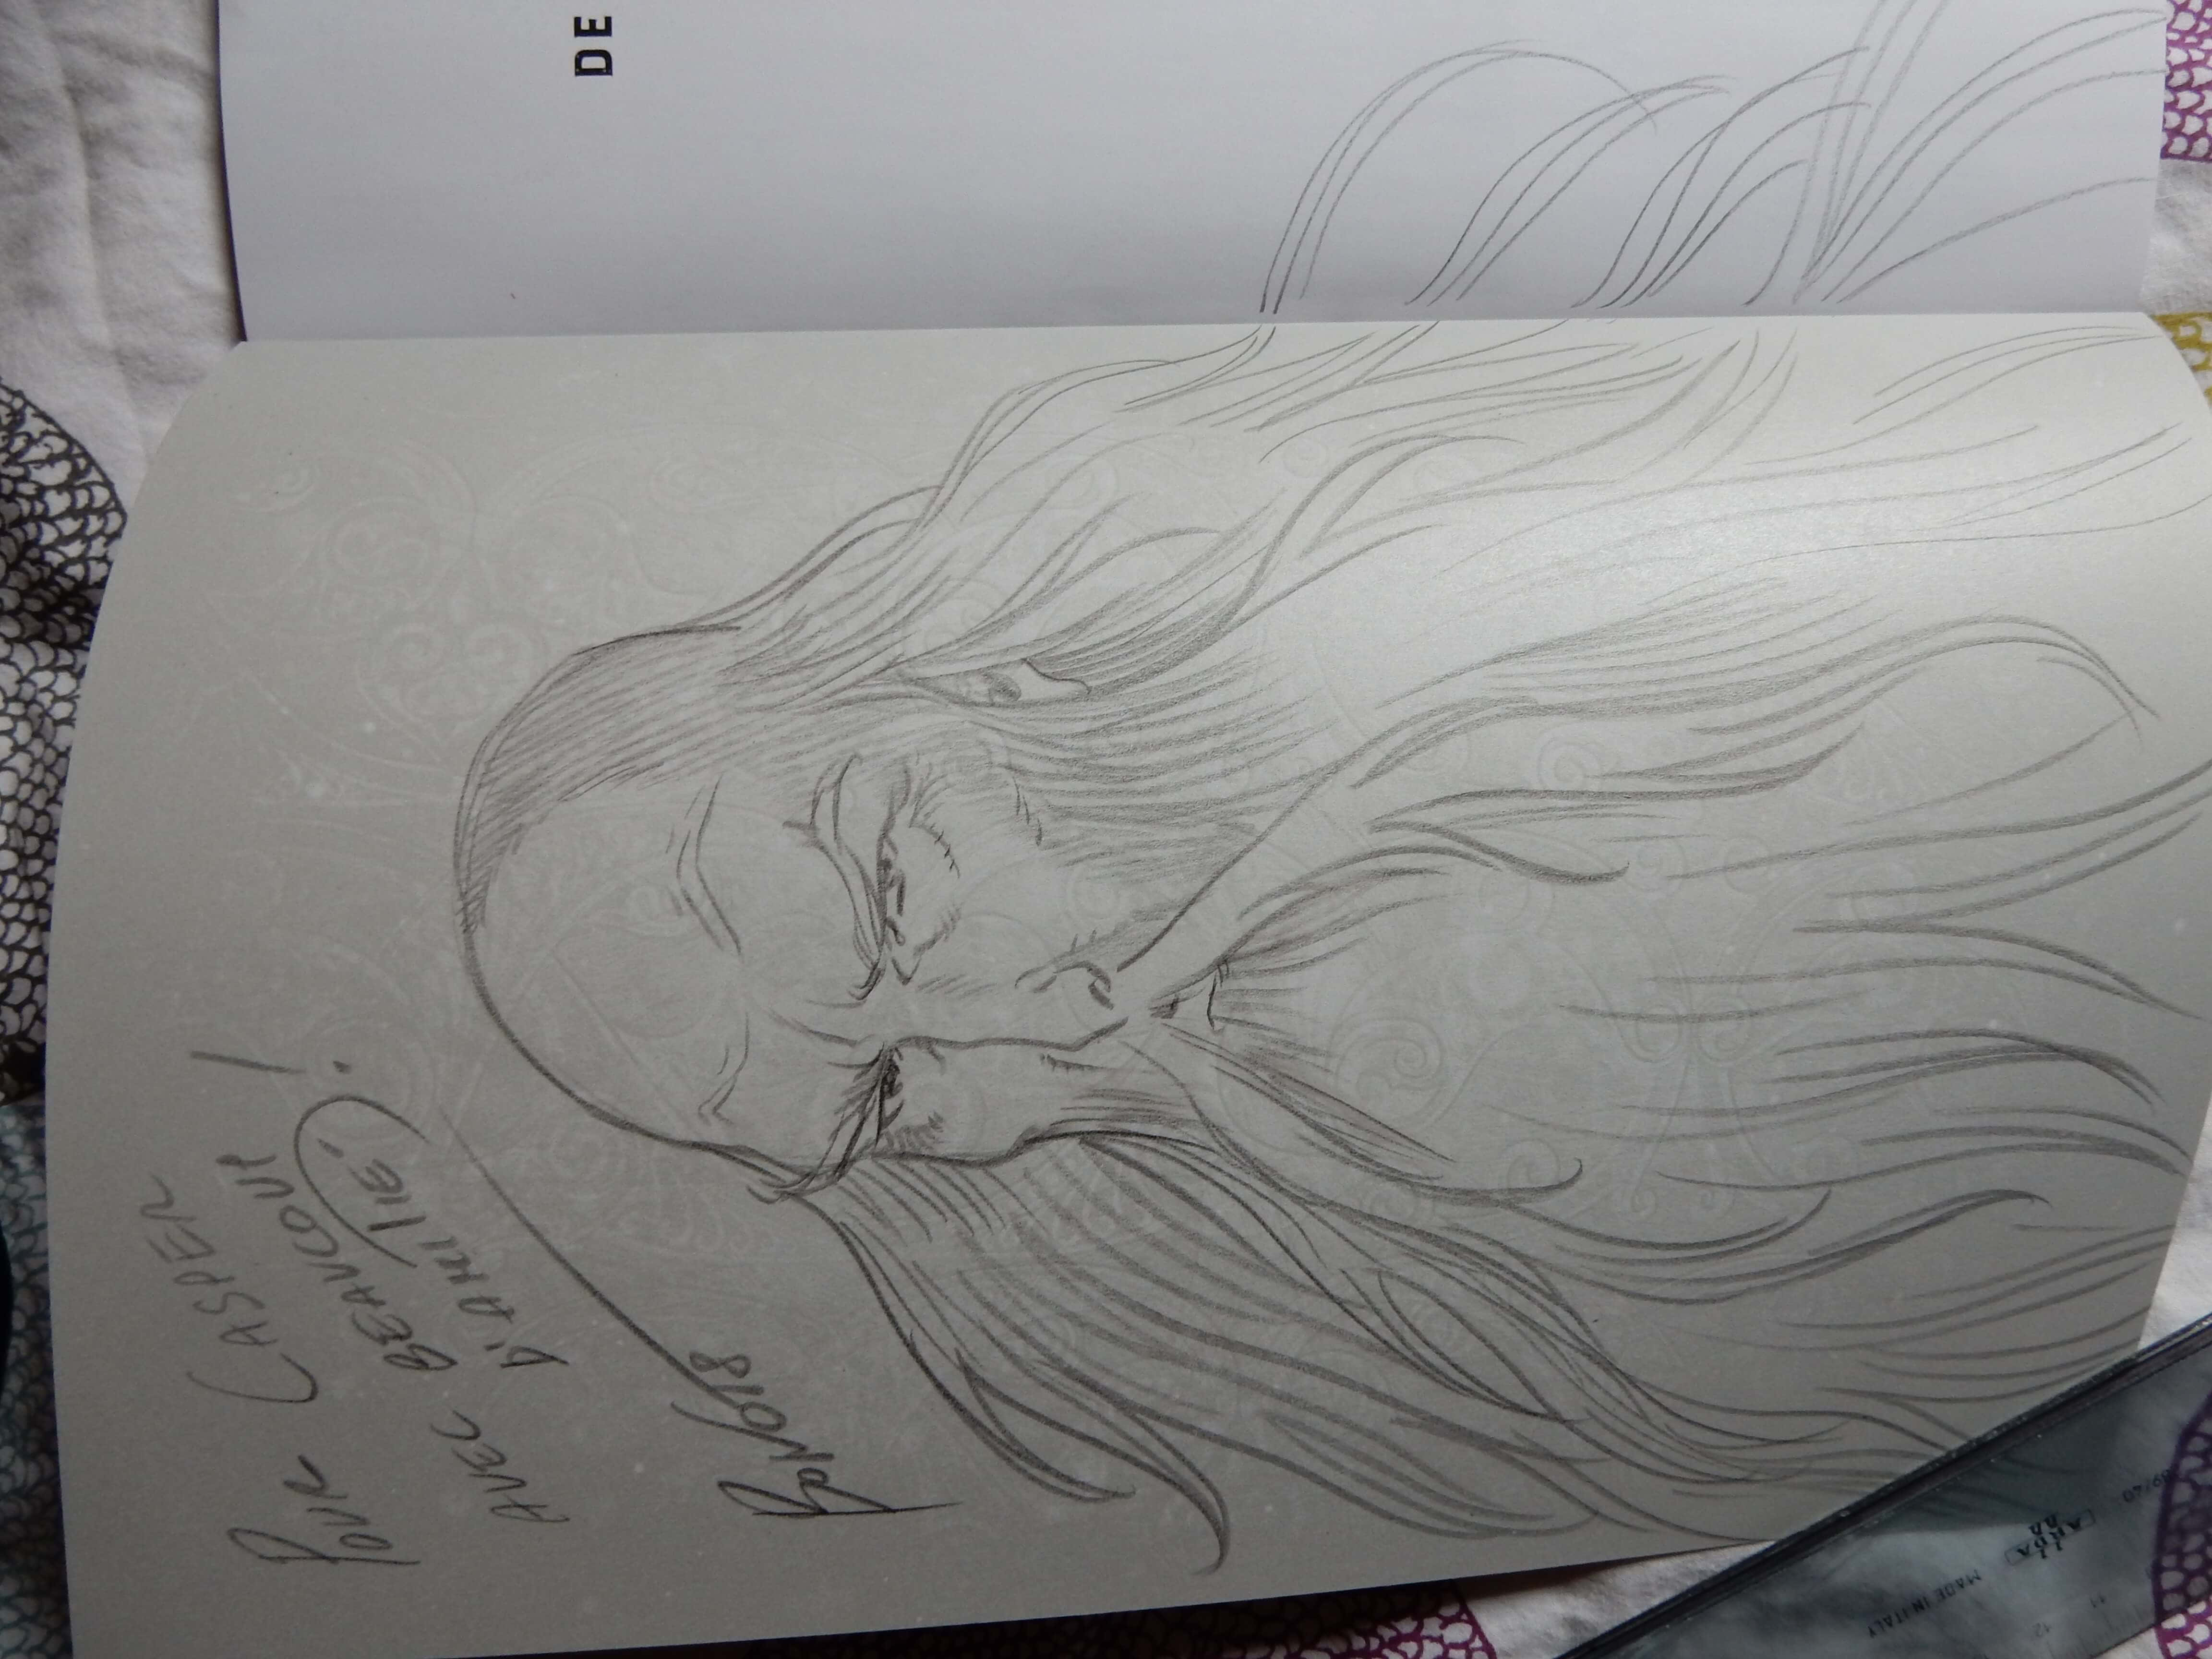 POUR CASPER
AVEC BEAUCOUP
D'AMITIÉ !
DE
MADE IN ITALY
12
11
39/40